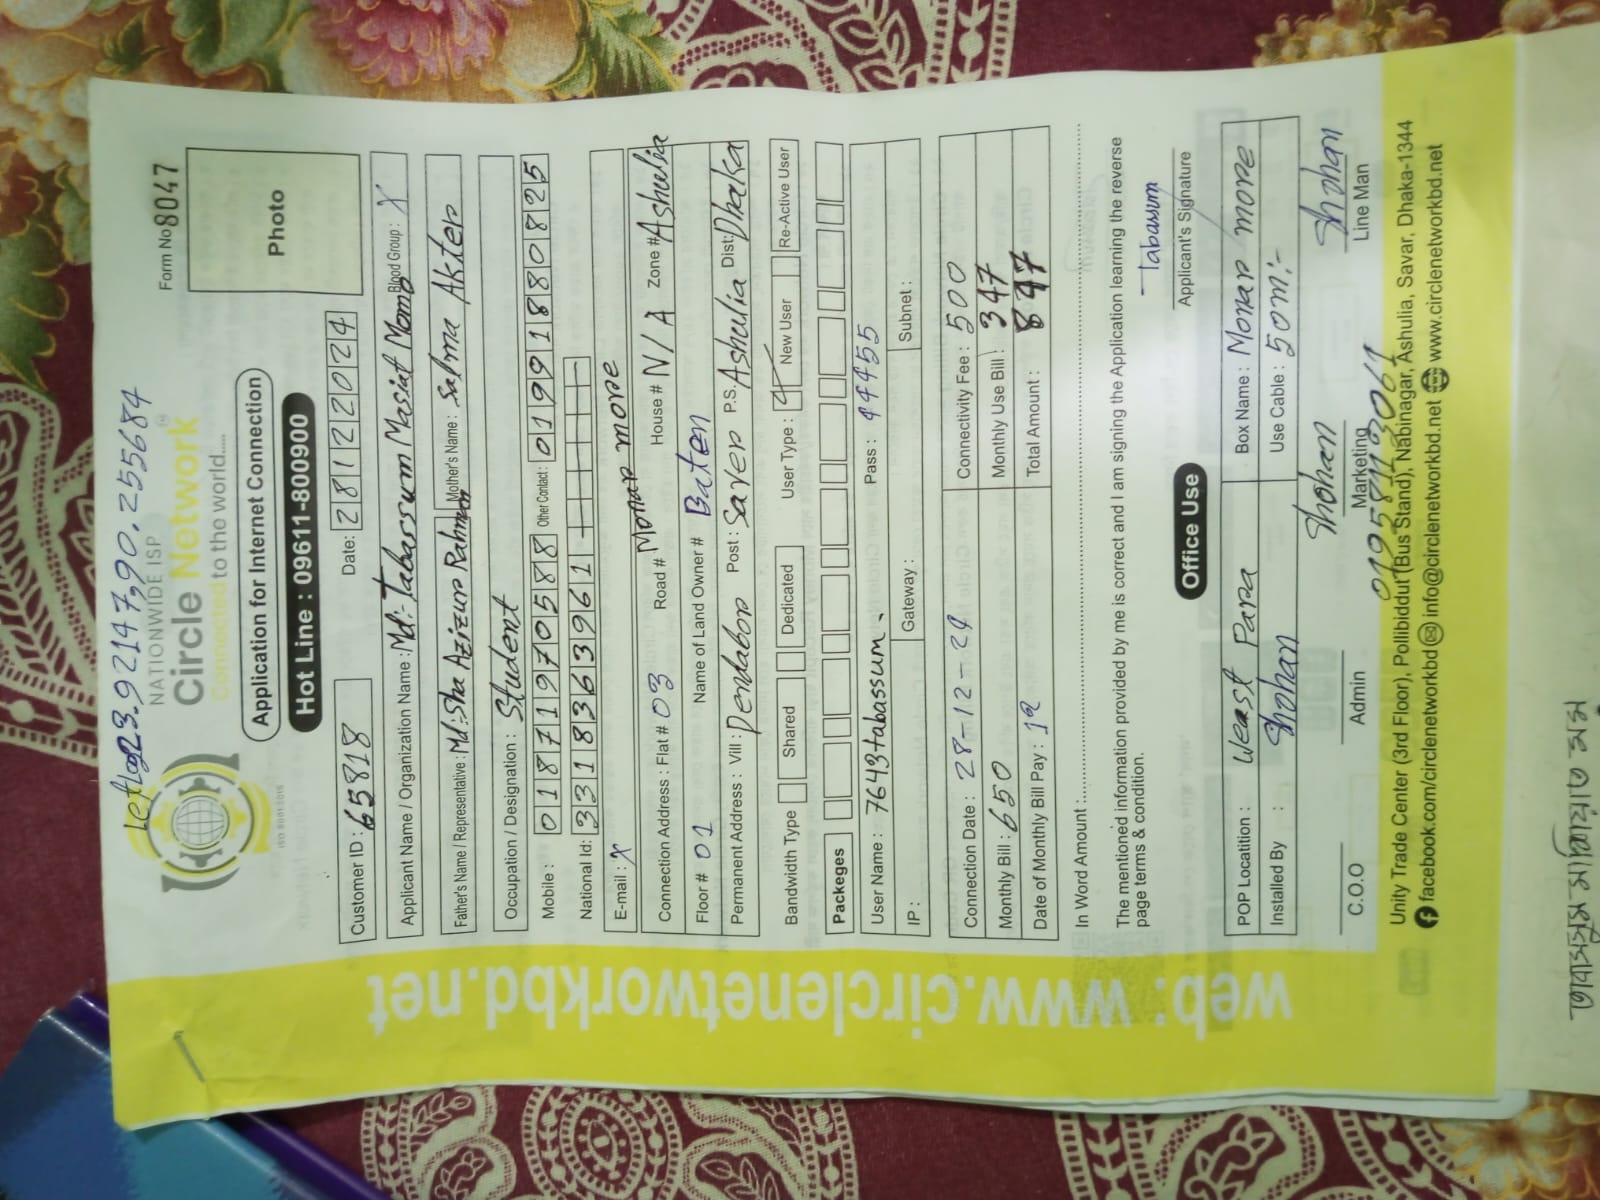 23.92147,90.255684
NATIONWIDE ISP
Circle Network
Connected to the world......
Form No 8047
Application for Internet Connection
Hot Line : 09611-800900
Photo
ISO 9001:2015
Customer ID : 65818 Date: 28122024
Applicant Name / Organization Name : Md:- Tabassum Masiat Momo Blood Group : X
Father's Name / Representative : Md:Sha Azizur Rahman Mother's Name : Salma Akter
Occupation / Designation : Student
Mobile : 01871970588 Other Contact: 01991880825
National Id: 3318363961
E-mail : X
Connection Address : Flat # 03 Road # Monar more House # N/A Zone # Ashulia
Floor # 01 Name of Land Owner # Baten
Permanent Address : Vill : Dendabor Post : Saver P.S. Ashulia Dist: Dhaka
Bandwidth Type Shared Dedicated User Type : New User Re-Active User
Packeges
User Name : 7643tabassum. Pass : 44455
IP : Gateway : Subnet :
Connection Date : 28-12-24 Connectivity Fee : 500
Monthly Bill : 650 Monthly Use Bill : 347
Date of Monthly Bill Pay : 12 Total Amount : 847
In Word Amount :
The mentioned information provided by me is correct and I am signing the Application learning the reverse
page terms & condition.
Tabassum
Applicant's Signature
Office Use
POP Locatition : Weast Para Box Name : Monar more
Installed By : Shohan Use Cable : 50m:-
Shohan Shohan
C.O.O Admin Marketing Line Man
Unity Trade Center (3rd Floor), Pollibiddut (Bus Stand), Nabinagar, Ashulia, Savar, Dhaka-1344
facebook.com/circlenetworkbd info@circlenetworkbd.net www.circlenetworkbd.net
web: www.circlenetworkbd.net